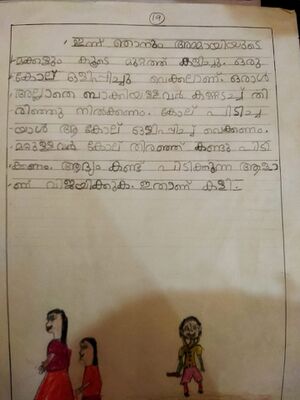 19
ഇന്ന് ഞാനും അമ്മായിയുടെ
മക്കളും കൂടെ മുറ്റത്ത് കളിച്ചു. ഒരു
കോല് ഒളിപ്പിച്ചു വെക്കലാണ്. ഒരാൾ
അല്ലാതെ ബാക്കിയുള്ളവർ കണ്ണടച്ച് തി
രിഞ്ഞു നിൽക്കണം. കോല് പിടിച്ച
യാൾ ആ കോല് ഒളിപ്പിച്ച് വെക്കണം.
മറ്റുള്ളവർ കോല് തിരഞ്ഞ് കണ്ടു പിടി
ക്കണം. ആദ്യം കണ്ട് പിടിക്കുന്ന ആളാ
ണ് വിജയിക്കുക. ഇതാണ് കളി.